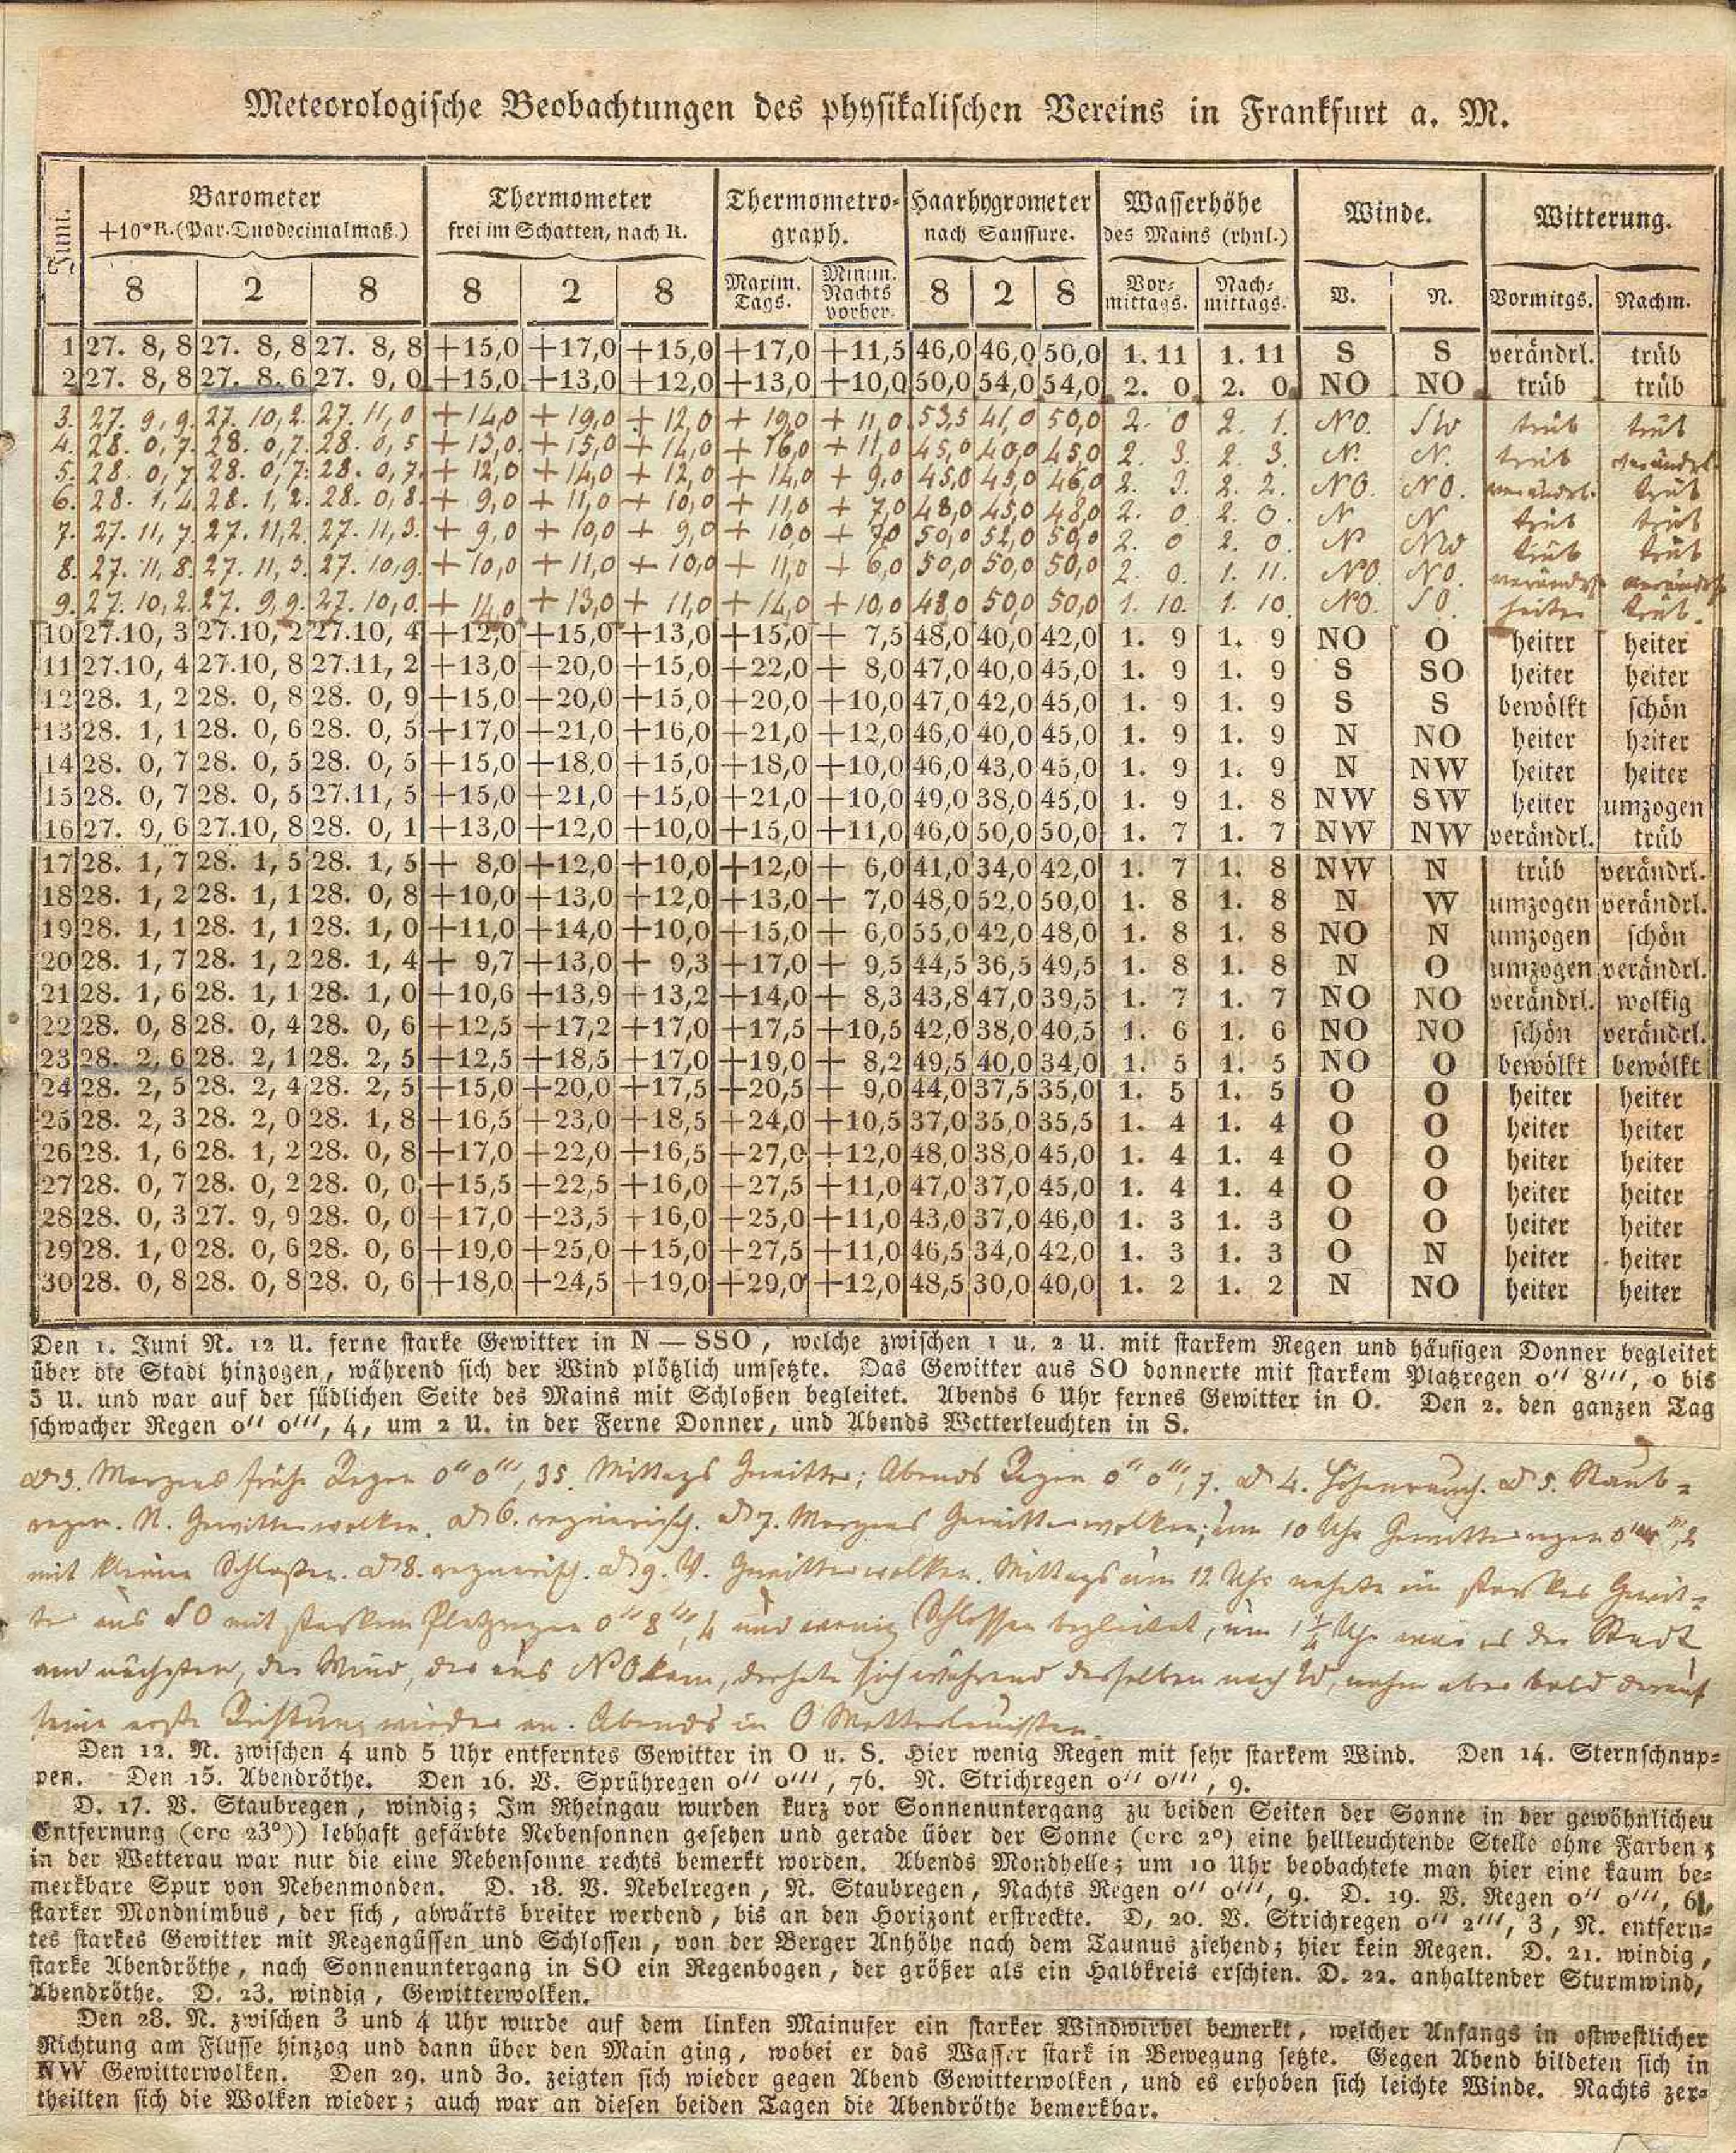 Meteorologische Beobachtungen des physikalischen Vereins in Frankfurt a. M.
Juni. Barometer Thermometer Thermometro- Haarhygrometer Wasserhöhe Winde. Witterung.
+10°R.(Par.Duodecimalmaß.) frei im Schatten, nach R. graph. nach Saussure. des Mains (rhnl.)
8 2 8 8 2 8 Maxim. Tags. Minim. Nachts vorher. 8 2 8 Vor-mittags. Nach-mittags. V. N. Vormitgs. Nachm.
1 27. 8, 8 27. 8, 8 27. 8, 8 +15,0 +17,0 +15,0 +17,0 +11,5 46,0 46,0 50,0 1. 11 1. 11 S S verändrl. trüb
2 27. 8, 8 27. 8. 6 27. 9, 0 +15,0 +13,0 +12,0 +13,0 +10,0 50,0 54,0 54,0 2. 0 2. 0 NO NO trüb trüb
3. 27. 9, 9. 27. 10, 2. 27. 11, 0 + 14,0 + 19,0 + 12,0 + 19,0 + 11,0 53,5 41,0 50,0 2. 0 2. 1. NO. SW trüb trüb
4. 28. 0, 7. 28. 0, 7. 28. 0, 5 + 13,0 + 15,0 + 14,0 + 16,0 + 11,0 45,0 40,0 45,0 2. 3. 2. 3. N. N. trüb verändrl.
5. 28. 0, 7 28. 0, 7. 28. 0, 7. + 12,0 + 14,0 + 12,0 + 14,0 + 9,0 45,0 45,0 46,0 2. 3. 2. 2. NO. NO. verändrl. trüb
6. 28. 1, 4. 28. 1, 2. 28. 0, 8. + 9,0 + 11,0 + 10,0 + 11,0 + 7,0 48,0 45,0 48,0 2. 0. 2. 0. N N trüb trüb
7. 27. 11, 7. 27. 11, 2. 27. 11, 3. + 9,0 + 10,0 + 9,0 + 10,0 + 7,0 50,0 52,0 50,0 2. 0 2. 0. N NW trüb trüb
8. 27. 11, 8. 27. 11, 3. 27. 10, 9. + 10,0 + 11,0 + 10,0 + 11,0 + 6,0 50,0 50,0 50,0 2. 0. 1. 11. NO. NO. verändrl. verändrl.
9. 27. 10, 2. 27. 9, 9. 27. 10, 0. + 14,0 + 13,0 + 11,0 + 14,0 + 10,0 48,0 50,0 50,0 1. 10. 1. 10. NO. SO. heiter trüb.
10 27.10, 3 27.10, 2 27.10, 4 +12,0 +15,0 +13,0 +15,0 + 7,5 48,0 40,0 42,0 1. 9 1. 9 NO O heiter heiter
11 27.10, 4 27.10, 8 27.11, 2 +13,0 +20,0 +15,0 +22,0 + 8,0 47,0 40,0 45,0 1. 9 1. 9 S SO heiter heiter
12 28. 1, 2 28. 0, 8 28. 0, 9 +15,0 +20,0 +15,0 +20,0 +10,0 47,0 42,0 45,0 1. 9 1. 9 S S bewölkt schön
13 28. 1, 1 28. 0, 6 28. 0, 5 +17,0 +21,0 +16,0 +21,0 +12,0 46,0 40,0 45,0 1. 9 1. 9 N NO heiter heiter
14 28. 0, 7 28. 0, 5 28. 0, 5 +15,0 +18,0 +15,0 +18,0 +10,0 46,0 43,0 45,0 1. 9 1. 9 N NW heiter heiter
15 28. 0, 7 28. 0, 5 27.11, 5 +15,0 +21,0 +15,0 +21,0 +10,0 49,0 38,0 45,0 1. 9 1. 8 NW SW heiter umzogen
16 27. 9, 6 27.10, 8 28. 0, 1 +13,0 +12,0 +10,0 +15,0 +11,0 46,0 50,0 50,0 1. 7 1. 7 NW NW verändrl. trüb
17 28. 1, 7 28. 1, 5 28. 1, 5 + 8,0 +12,0 +10,0 +12,0 + 6,0 41,0 34,0 42,0 1. 7 1. 8 NW N trüb verändrl.
18 28. 1, 2 28. 1, 1 28. 0, 8 +10,0 +13,0 +12,0 +13,0 + 7,0 48,0 52,0 50,0 1. 8 1. 8 N W umzogen verändrl.
19 28. 1, 1 28. 1, 1 28. 1, 0 +11,0 +14,0 +10,0 +15,0 + 6,0 55,0 42,0 48,0 1. 8 1. 8 NO N umzogen schön
20 28. 1, 7 28. 1, 2 28. 1, 4 + 9,7 +13,0 + 9,3 +17,0 + 9,5 44,5 36,5 49,5 1. 8 1. 8 N O umzogen verändrl.
21 28. 1, 6 28. 1, 1 28. 1, 0 +10,6 +13,9 +13,2 +14,0 + 8,3 43,8 47,0 39,5 1. 7 1. 7 NO NO verändrl. wolkig
22 28. 0, 8 28. 0, 4 28. 0, 6 +12,5 +17,2 +17,0 +17,5 +10,5 42,0 38,0 40,5 1. 6 1. 6 NO NO schön verändrl.
23 28. 2, 6 28. 2, 1 28. 2, 5 +12,5 +18,5 +17,0 +19,0 + 8,2 49,5 40,0 34,0 1. 5 1. 5 NO O bewölkt bewölkt
24 28. 2, 5 28. 2, 4 28. 2, 5 +15,0 +20,0 +17,5 +20,5 + 9,0 44,0 37,5 35,0 1. 5 1. 5 O O heiter heiter
25 28. 2, 3 28. 2, 0 28. 1, 8 +16,5 +23,0 +18,5 +24,0 +10,5 37,0 35,0 35,5 1. 4 1. 4 O O heiter heiter
26 28. 1, 6 28. 1, 2 28. 0, 8 +17,0 +22,0 +16,5 +27,0 +12,0 48,0 38,0 45,0 1. 4 1. 4 O O heiter heiter
27 28. 0, 7 28. 0, 2 28. 0, 0 +15,5 +22,5 +16,0 +27,5 +11,0 47,0 37,0 45,0 1. 4 1. 4 O O heiter heiter
28 28. 0, 3 27. 9, 9 28. 0, 0 +17,0 +23,5 +16,0 +25,0 +11,0 43,0 37,0 46,0 1. 3 1. 3 O O heiter heiter
29 28. 1, 0 28. 0, 6 28. 0, 6 +19,0 +25,0 +15,0 +27,5 +11,0 46,5 34,0 42,0 1. 3 1. 3 O N heiter heiter
30 28. 0, 8 28. 0, 8 28. 0, 6 +18,0 +24,5 +19,0 +29,0 +12,0 48,5 30,0 40,0 1. 2 1. 2 N NO heiter heiter
Den 1. Juni N. 12 U. ferne starke Gewitter in N — SSO, welche zwischen 1 u. 2 U. mit starkem Regen und häufigen Donner begleitet
über die Stadt hinzogen, während sich der Wind plötzlich umsetzte. Das Gewitter aus SO donnerte mit starkem Platzregen 0'' 8''', 0 bis
3 U. und war auf der südlichen Seite des Mains mit Schloßen begleitet. Abends 6 Uhr fernes Gewitter in O. Den 2. den ganzen Tag
schwacher Regen 0'' 0''', 4, um 2 U. in der Ferne Donner, und Abends Wetterleuchten in S.
d 3. Morgens frühe Regen 0'' 0''', 35. Mittags Gewitter; Abends Regen 0'' 0''', 7. d 4. Höhenrauch. d 5. Staub-
regen. N. Gewitterwolken. d 6. regnerisch. d 7. Morgens Gewitterwolken; um 10 Uhr Gewitterregen
mit kleinen Schloßen. d 8. regnerisch. d 9. V. Gewitterwolken. Mittags um 12 Uhr nahete ein starkes Gewit-
ter aus SO mit starkem Platzregen 0'' 8''', 4 und wenig Schlossen begleitet, um 1¼ Uhr war es der Stadt
am nächsten, der Wind, der aus NO kam, drehete sich während desselben nach W, nahm aber bald darauf
seine erste Richtung wieder an. Abends in O Wetterleuchten.
Den 12. N. zwischen 4 und 5 Uhr entferntes Gewitter in O u. S. Hier wenig Regen mit sehr starkem Wind. Den 14. Sternschnup-
pen. Den 15. Abendröthe. Den 16. V. Sprühregen 0'' 0''', 76. N. Strichregen 0'' 0''', 9.
D. 17. V. Staubregen, windig; Im Rheingau wurden kurz vor Sonnenuntergang zu beiden Seiten der Sonne in der gewöhnlichen
Entfernung (crc 23°)) lebhaft gefärbte Nebensonnen gesehen und gerade über der Sonne (crc 2°) eine hellleuchtende Stelle ohne Farben;
in der Wetterau war nur die eine Nebensonne rechts bemerkt worden. Abends Mondhelle; um 10 Uhr beobachtete man hier eine kaum be-
merkbare Spur von Nebenmonden. D. 18. V. Nebelregen, N. Staubregen, Nachts Regen 0'' 0''', 9. D. 19. V. Regen 0'' 0''', 6,
starker Mondnimbus, der sich, abwärts breiter werdend, bis an den Horizont erstreckte. D, 20. V. Strichregen 0'' 2''', 3, N. entfern-
tes starkes Gewitter mit Regengüssen und Schlossen, von der Berger Anhöhe nach dem Taunus ziehend; hier kein Regen. D. 21. windig,
starke Abendröthe, nach Sonnenuntergang in SO ein Regenbogen, der größer als ein Halbkreis erschien. D. 22. anhaltender Sturmwind,
Abendröthe. D. 23. windig, Gewitterwolken.
Den 28. N. zwischen 3 und 4 Uhr wurde auf dem linken Mainufer ein starker Windwirbel bemerkt, welcher Anfangs in ostwestlicher
Richtung am Flusse hinzog und dann über den Main ging, wobei er das Wasser stark in Bewegung setzte. Gegen Abend bildeten sich in
NW Gewitterwolken. Den 29. und 30. zeigten sich wieder gegen Abend Gewitterwolken, und es erhoben sich leichte Winde. Nachts zer-
theilten sich die Wolken wieder; auch war an diesen beiden Tagen die Abendröthe bemerkbar.